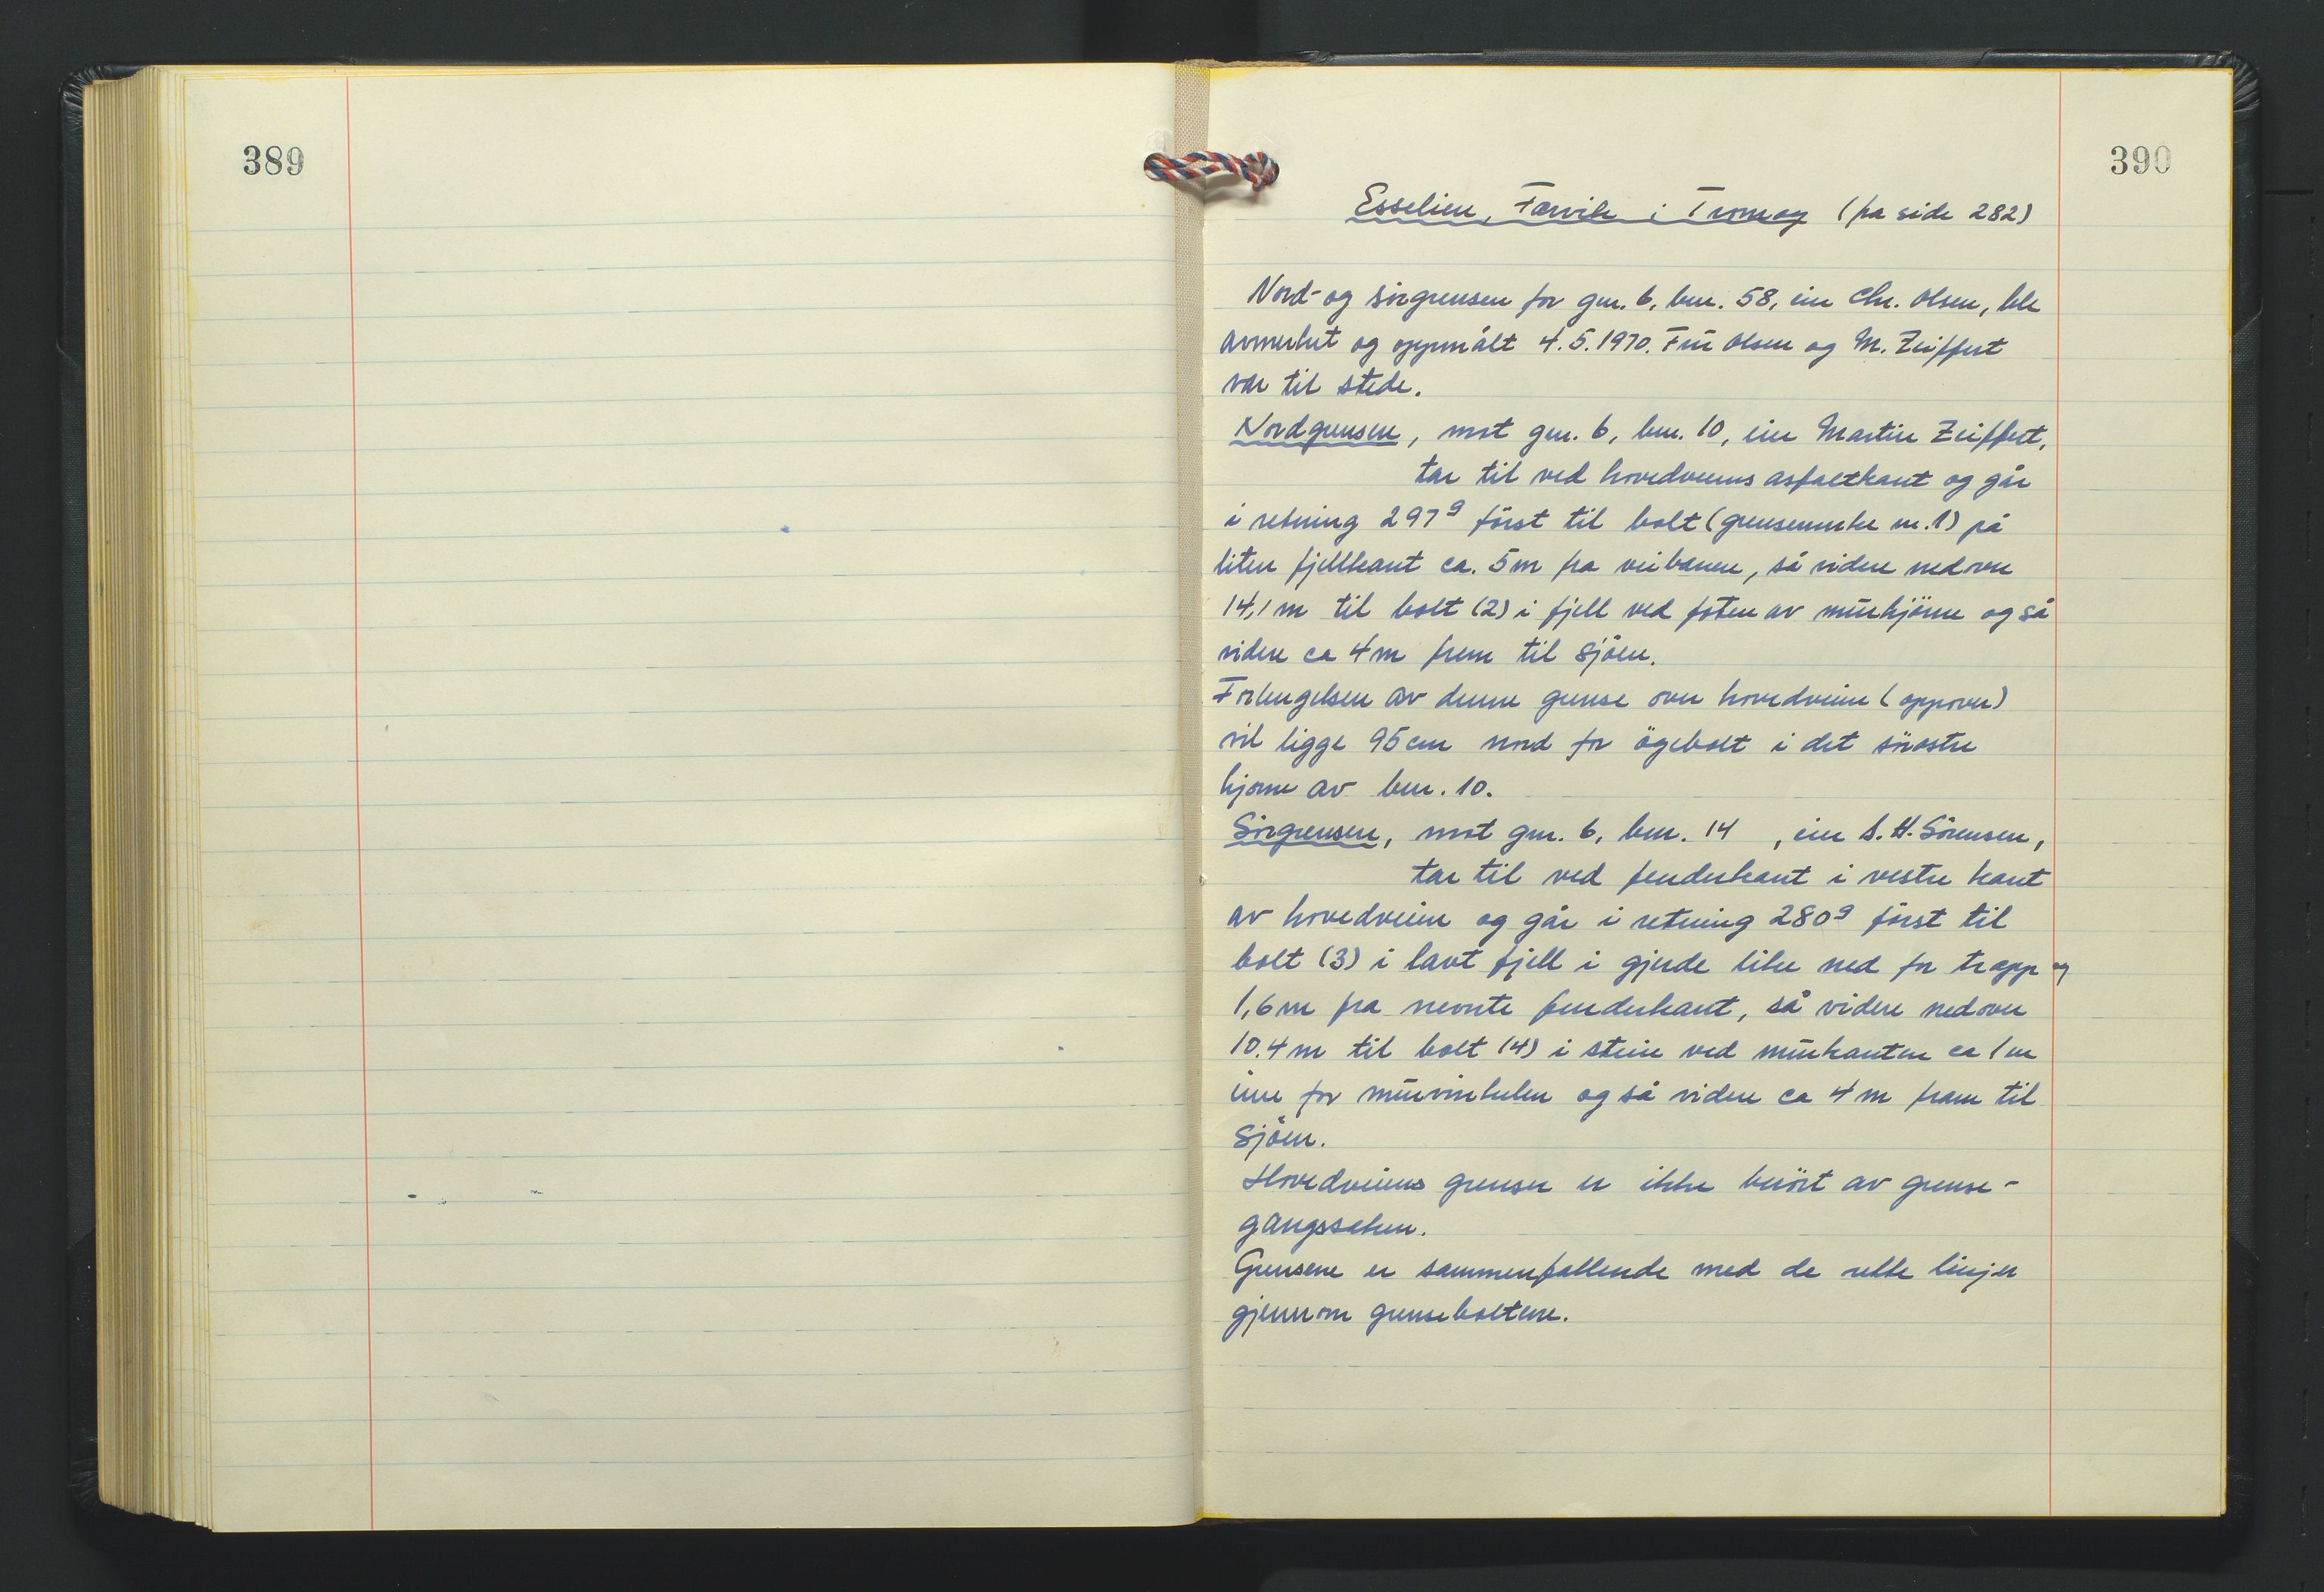 389
390
Esselien, Færvik i Tromøy (fra side 282)
Nord- og sörgrensen for gnr. 6, bnr. 58, eier Chr. Olsen, ble
avmerket og oppmålt 4.5.1970. Fru Olsen og M. Zeiffert
var til stede.
Nordgrensen, mot gnr. 6, bnr. 10, eier Martin Zeiffert,
tar til ved hovedveiens asfaltkant og går
i retning 297g först til bolt (grensemerke nr. 1) på
liten fjellkant ca. 5m fra veibanen, så videre nedover
14,1 m til bolt (2) i fjell ved foten av murhjörne og så
videre ca 4 m frem til sjöen.
Forlengelsen av denne grense over hovedveien (oppover)
vil ligge 95 cm nord for ögebolt i det sörøstre
hjørne av bnr. 10.
Sörgrensen, mot gnr. 6, bnr. 14 , eier S. H. Sörensen,
tar til ved fenderkant i vestre kant
av hovedveien og går i retning 280g först til
bolt (3) i lavt fjell i gjerde like ned for trapp og
1,6 m fra nevnte fenderkant, så videre nedover
10.4 m til bolt (4) i stein ved murkanten ca 1 m
inne for murvinkelen og så videre ca 4 m fram til
sjöen.
Hovedveiens grenser er ikke berört av grense-
gangssaken.
Grensene er sammenfallende med de rette linjer
gjennom grenseboltene.